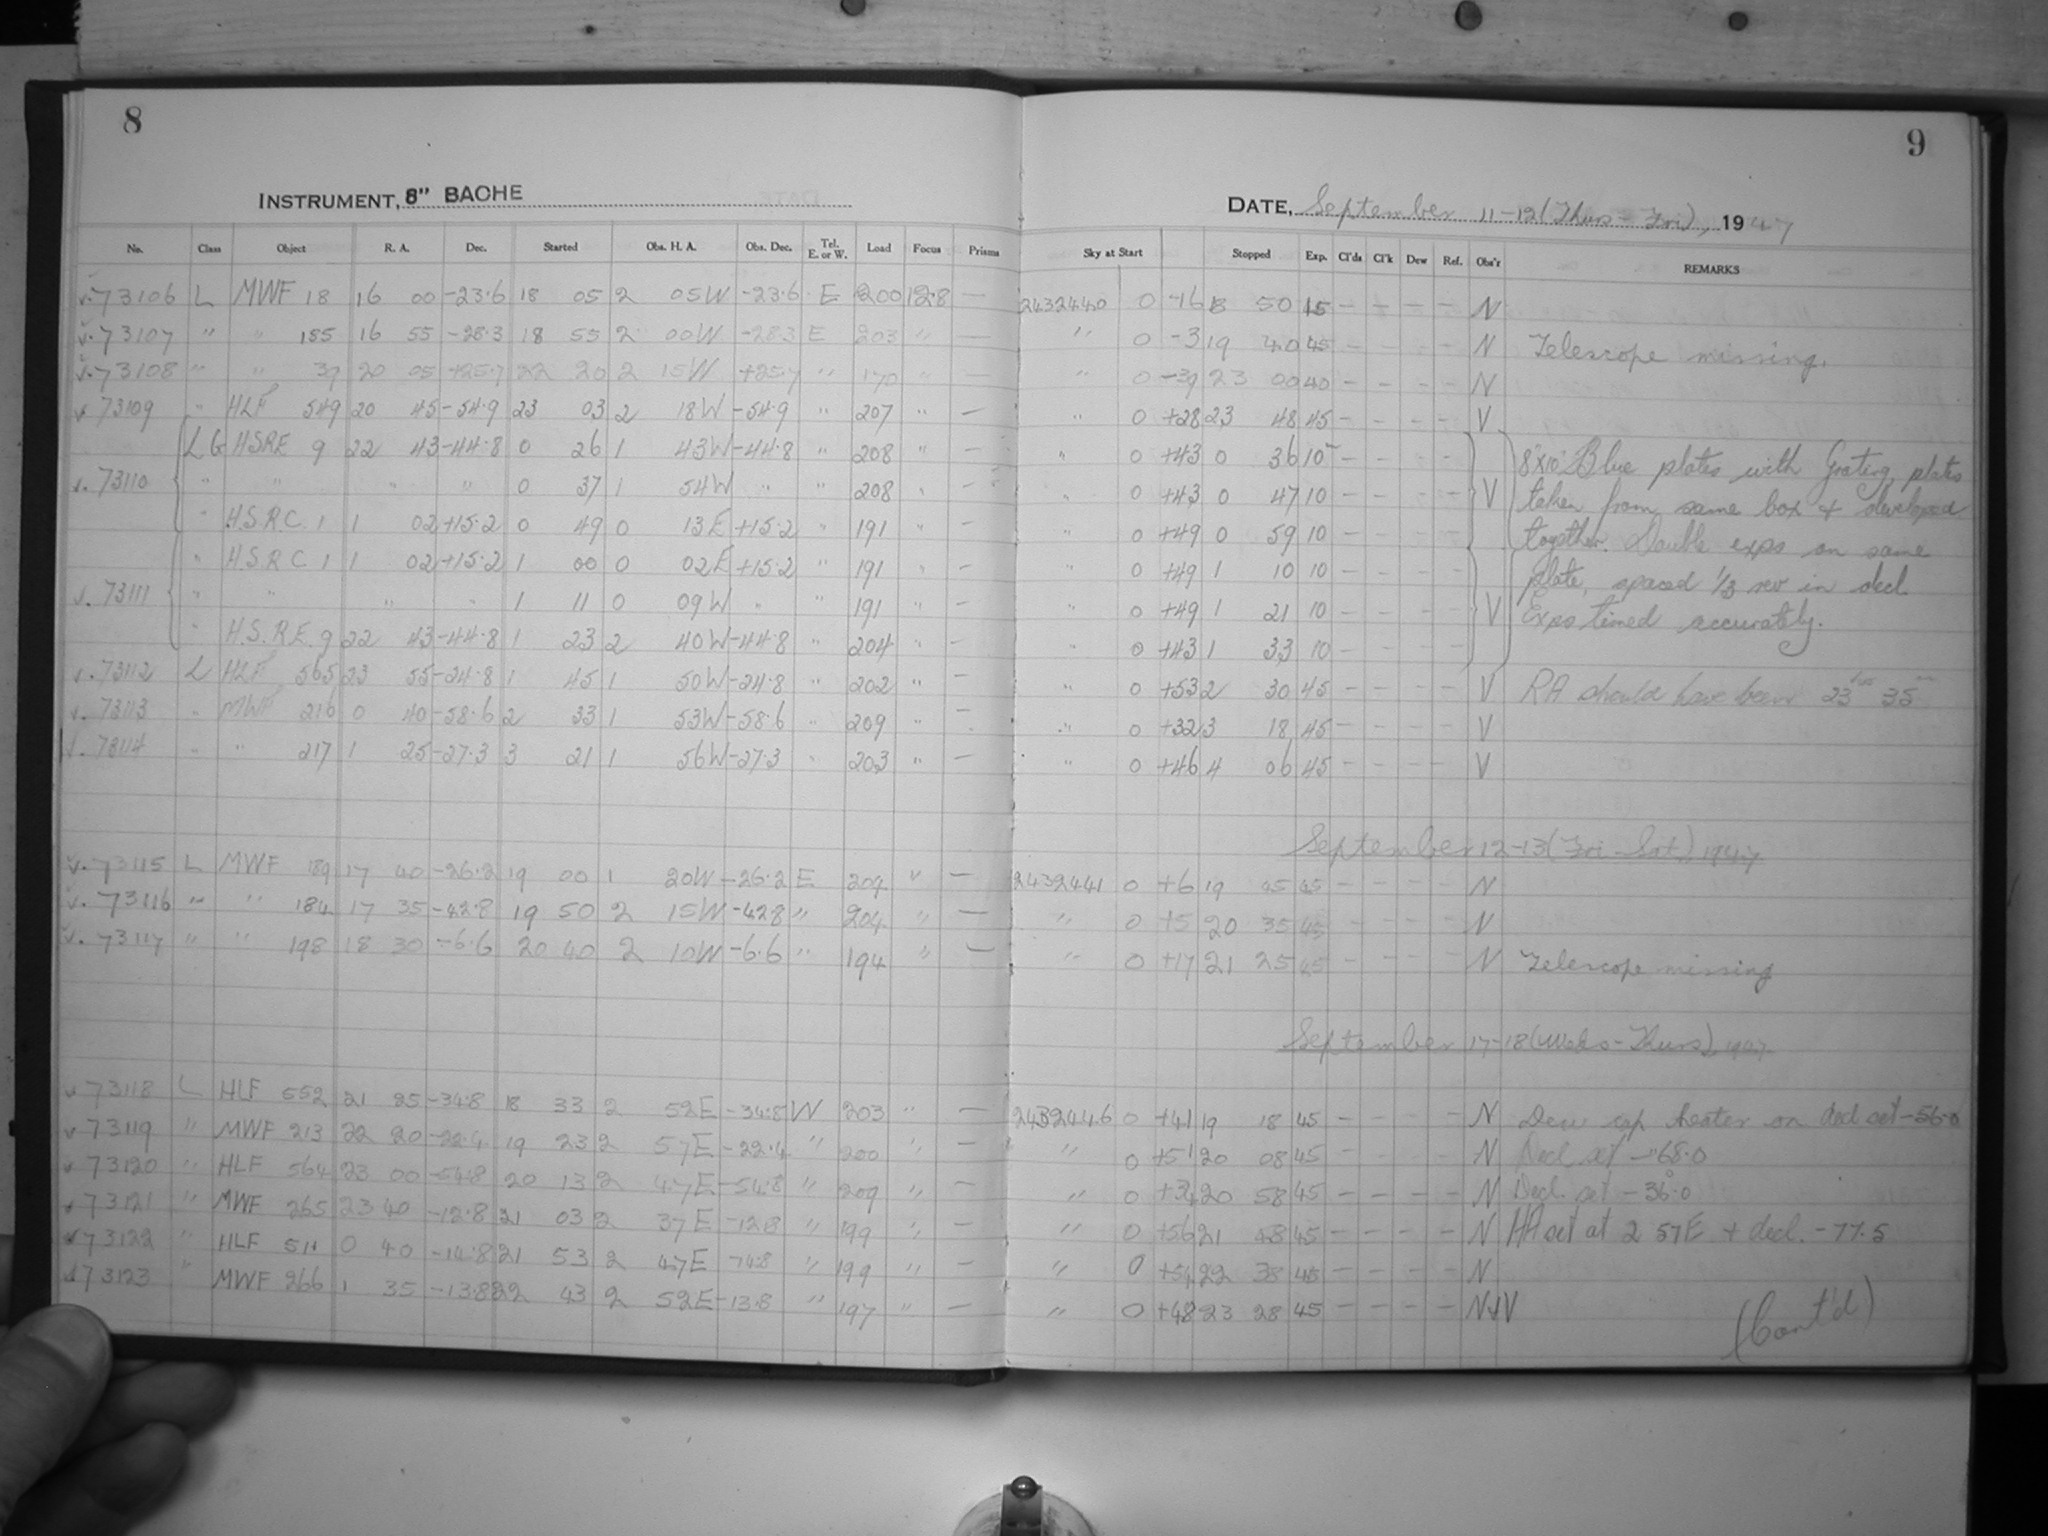 8
INSTRUMENT, 8" BACHE
No. Class Object R. A. Dec. Started Obs. H. A. Obs. Dec. Tel. E. or W. Load Focus Prisms
v. 73106 L MWF 18 16 00 -23.6 18 05 2 05W -23.6 E 200 12.8 —
v. 73107 " " 155 16 55 -28.3 18 55 2 00W -28.3 E 203 " —
v. 73108 " " 37 20 05 +25.7 22 20 2 15W +25.7 " 170 " —
v 73109 " HLF 549 20 45 -54.9 23 03 2 18W -54.9 " 207 " —
LG HSRE 9 22 43 -44.8 0 26 1 43W -44.8 " 208 " —
v. 73110 " " " " 0 37 1 54W " " 208 " —
" H.S.R.C. 1 1 02 +15.2 0 49 0 13E +15.2 " 191
" H.S.R.C 1 1 02 +15.2 1 00 0 02E +15.2 " 191 " —
v. 73111 " " " " 1 11 0 09W " " 191 " —
" H.S.R.E. 9 22 43 -44.8 1 23 2 40W -44.8 " 204 " —
v. 73112 L HLF 565 23 55 -24.8 1 45 1 50W -24.8 " 202 " —
v. 73113 " MWF 216 0 40 -58.6 2 33 1 53W -58.6 " 209 " —
v. 73114 " " 217 1 25 -27.3 3 21 1 56W -27.3 " 203 " —
v. 73115 L MWF 189 17 40 -26.2 19 00 1 20W -26.2 E 204 " —
v. 73116 " " 184 17 35 -42.8 19 50 2 15W -42.8 " 204 " —
v. 73117 " " 198 18 30 -6.6 20 40 2 10W -6.6 " 194 " —
v 73118 L HLF 552 21 25 -34.8 18 33 2 52E -34.8 W 203 " —
v 73119 " MWF 213 22 20 -22.4 19 23 2 57E -22.4 " 200 "
v 73120 " HLF 564 23 00 -54.8 20 13 2 47E -54.8 " 209 " —
v 73121 " MWF 265 23 40 -12.8 21 03 2 37E -12.8 " 199 " —
v 73122 " HLF 511 0 40 -14.8 21 53 2 47E " 199 " —
v 73123 " MWF 266 1 35 -13.8 22 43 2 52E -13.8 " 197 " —
9
DATE, September 11-12 (Thurs - Fri), 1947
Sky at Start Stopped Exp. Cl'ds Cl'k Dew Ref. Obs'r REMARKS
2432440 0 -16 18 50 45 — — — — N
" 0 -3 19 40 45 — — — — N Telescope missing.
" 0 -39 23 00 40 — — — — N
" 0 +28 23 48 45 — — — — V
" 0 +43 0 36 10 — — — — 8x10" Blue plates with Grating, plates
" 0 +43 0 47 10 — — — — V taken from same box + developed
" 0 +49 0 59 10 — — — — together. Double exps on same
" 0 +49 1 10 10 — — — — plate, spaced 1/3 rev in decl.
" 0 +49 1 21 10 — — — — V Exps timed accurately.
" 0 +43 1 33 10 — — — —
" 0 +53 2 30 45 — — — — V RA should have been 23 hrs 35 m
" 0 +32 3 18 45 — — — — V
" 0 +46 4 06 45 — — — — V
September 12-13 (Fri - Sat), 1947
2432441 0 +6 19 45 45 — — — — N
" 0 +5 20 35 45 — — — — N
" 0 +17 21 25 45 — — — — N Telescope missing
September 17-18 (Weds - Thurs), 1947
2432446 0 +41 19 18 45 — — — — N Dew cap heater on decl set -56.0
" 0 +51 20 08 45 — — — — N Decl set -68.0
" 0 +34 20 58 45 — — — — N Decl. set -36°.0
" 0 +56 21 48 45 — — — — N HA set at 2 57E + decl. -77.5
" 0 +54 22 38 45 — — — — N
" 0 +48 23 28 45 — — — — N+V
(Cont'd)